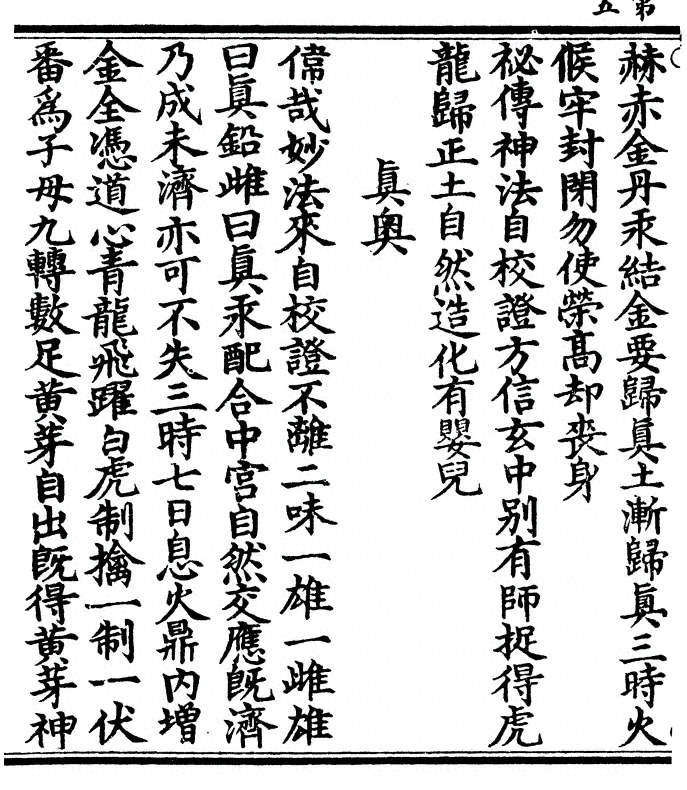 第
五
赫赤金丹汞結金要歸眞土漸歸眞三時火
候牢封閉勿使榮高却喪身
祕傳神法自校證方信玄中别有師捉得虎
龍歸正土自然造化有嬰兒
眞奥
偉哉妙法來自校證不離二味一雄一雌雄
曰眞鉛雌曰眞汞配合中宫自然交應旣濟
乃成未濟亦可不失三時七日息火鼎内增
金全憑道心青龍飛躍白虎制擒一制一伏
番爲子母九轉數足黄芽自出旣得黄芽神